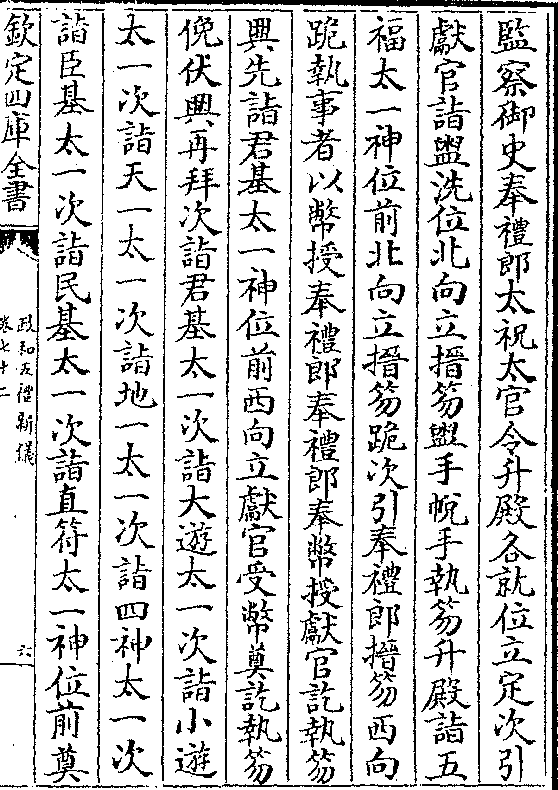 監察御史奉禮郎太祝太官令升殿各就位立定次引
獻官詣盥洗位北向立搢笏盥手帨手執笏升殿詣五
福太一神位前北向立搢笏跪次引奉禮郎搢笏西向
跪執事者以幣授奉禮郎奉禮郎奉幣授獻官訖執笏
興先詣君基太一神位前西向立獻官受幣奠訖執笏
俛伏興再拜次詣君基太一次詣大遊太一次詣小遊
太一次詣天一太一次詣地一太一次詣四神太一次
詣臣基太一次詣民基太一次詣直符太一神位前奠
欽定四庫全書
政和五禮新儀
卷七十二
六